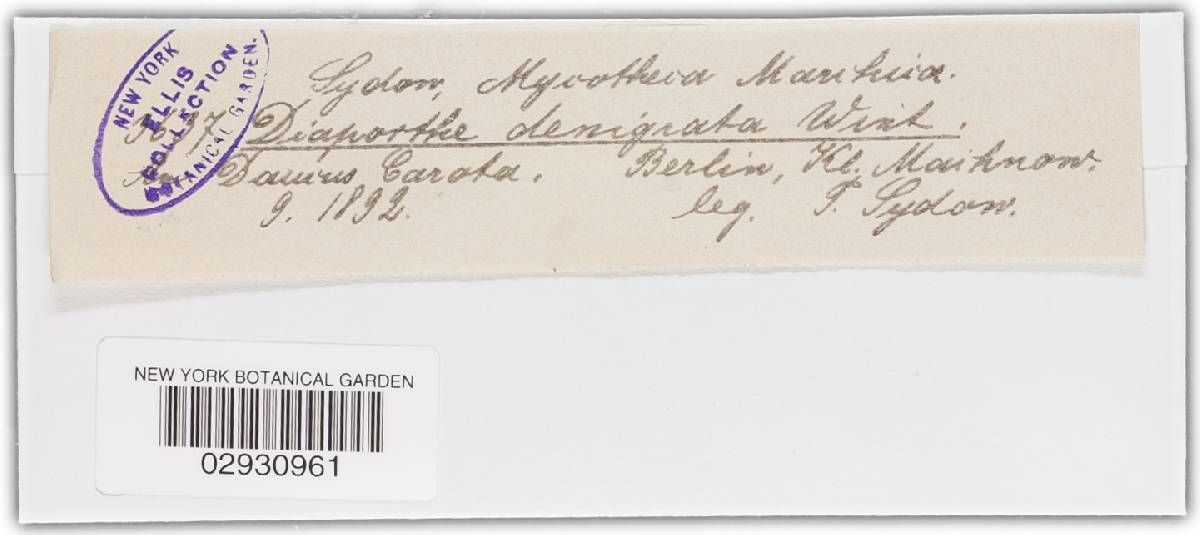 NEW YORK
ELLIS
COLLECTION
BOTANICAL GARDEN.
Sydow, Mycotheca Marchica.
3637 Diaporthe denigrata Wint.
Daucus Carota. Berlin, Kl. Machnow.
9. 1892. leg. P. Sydow.
NEW YORK BOTANICAL GARDEN
02930961